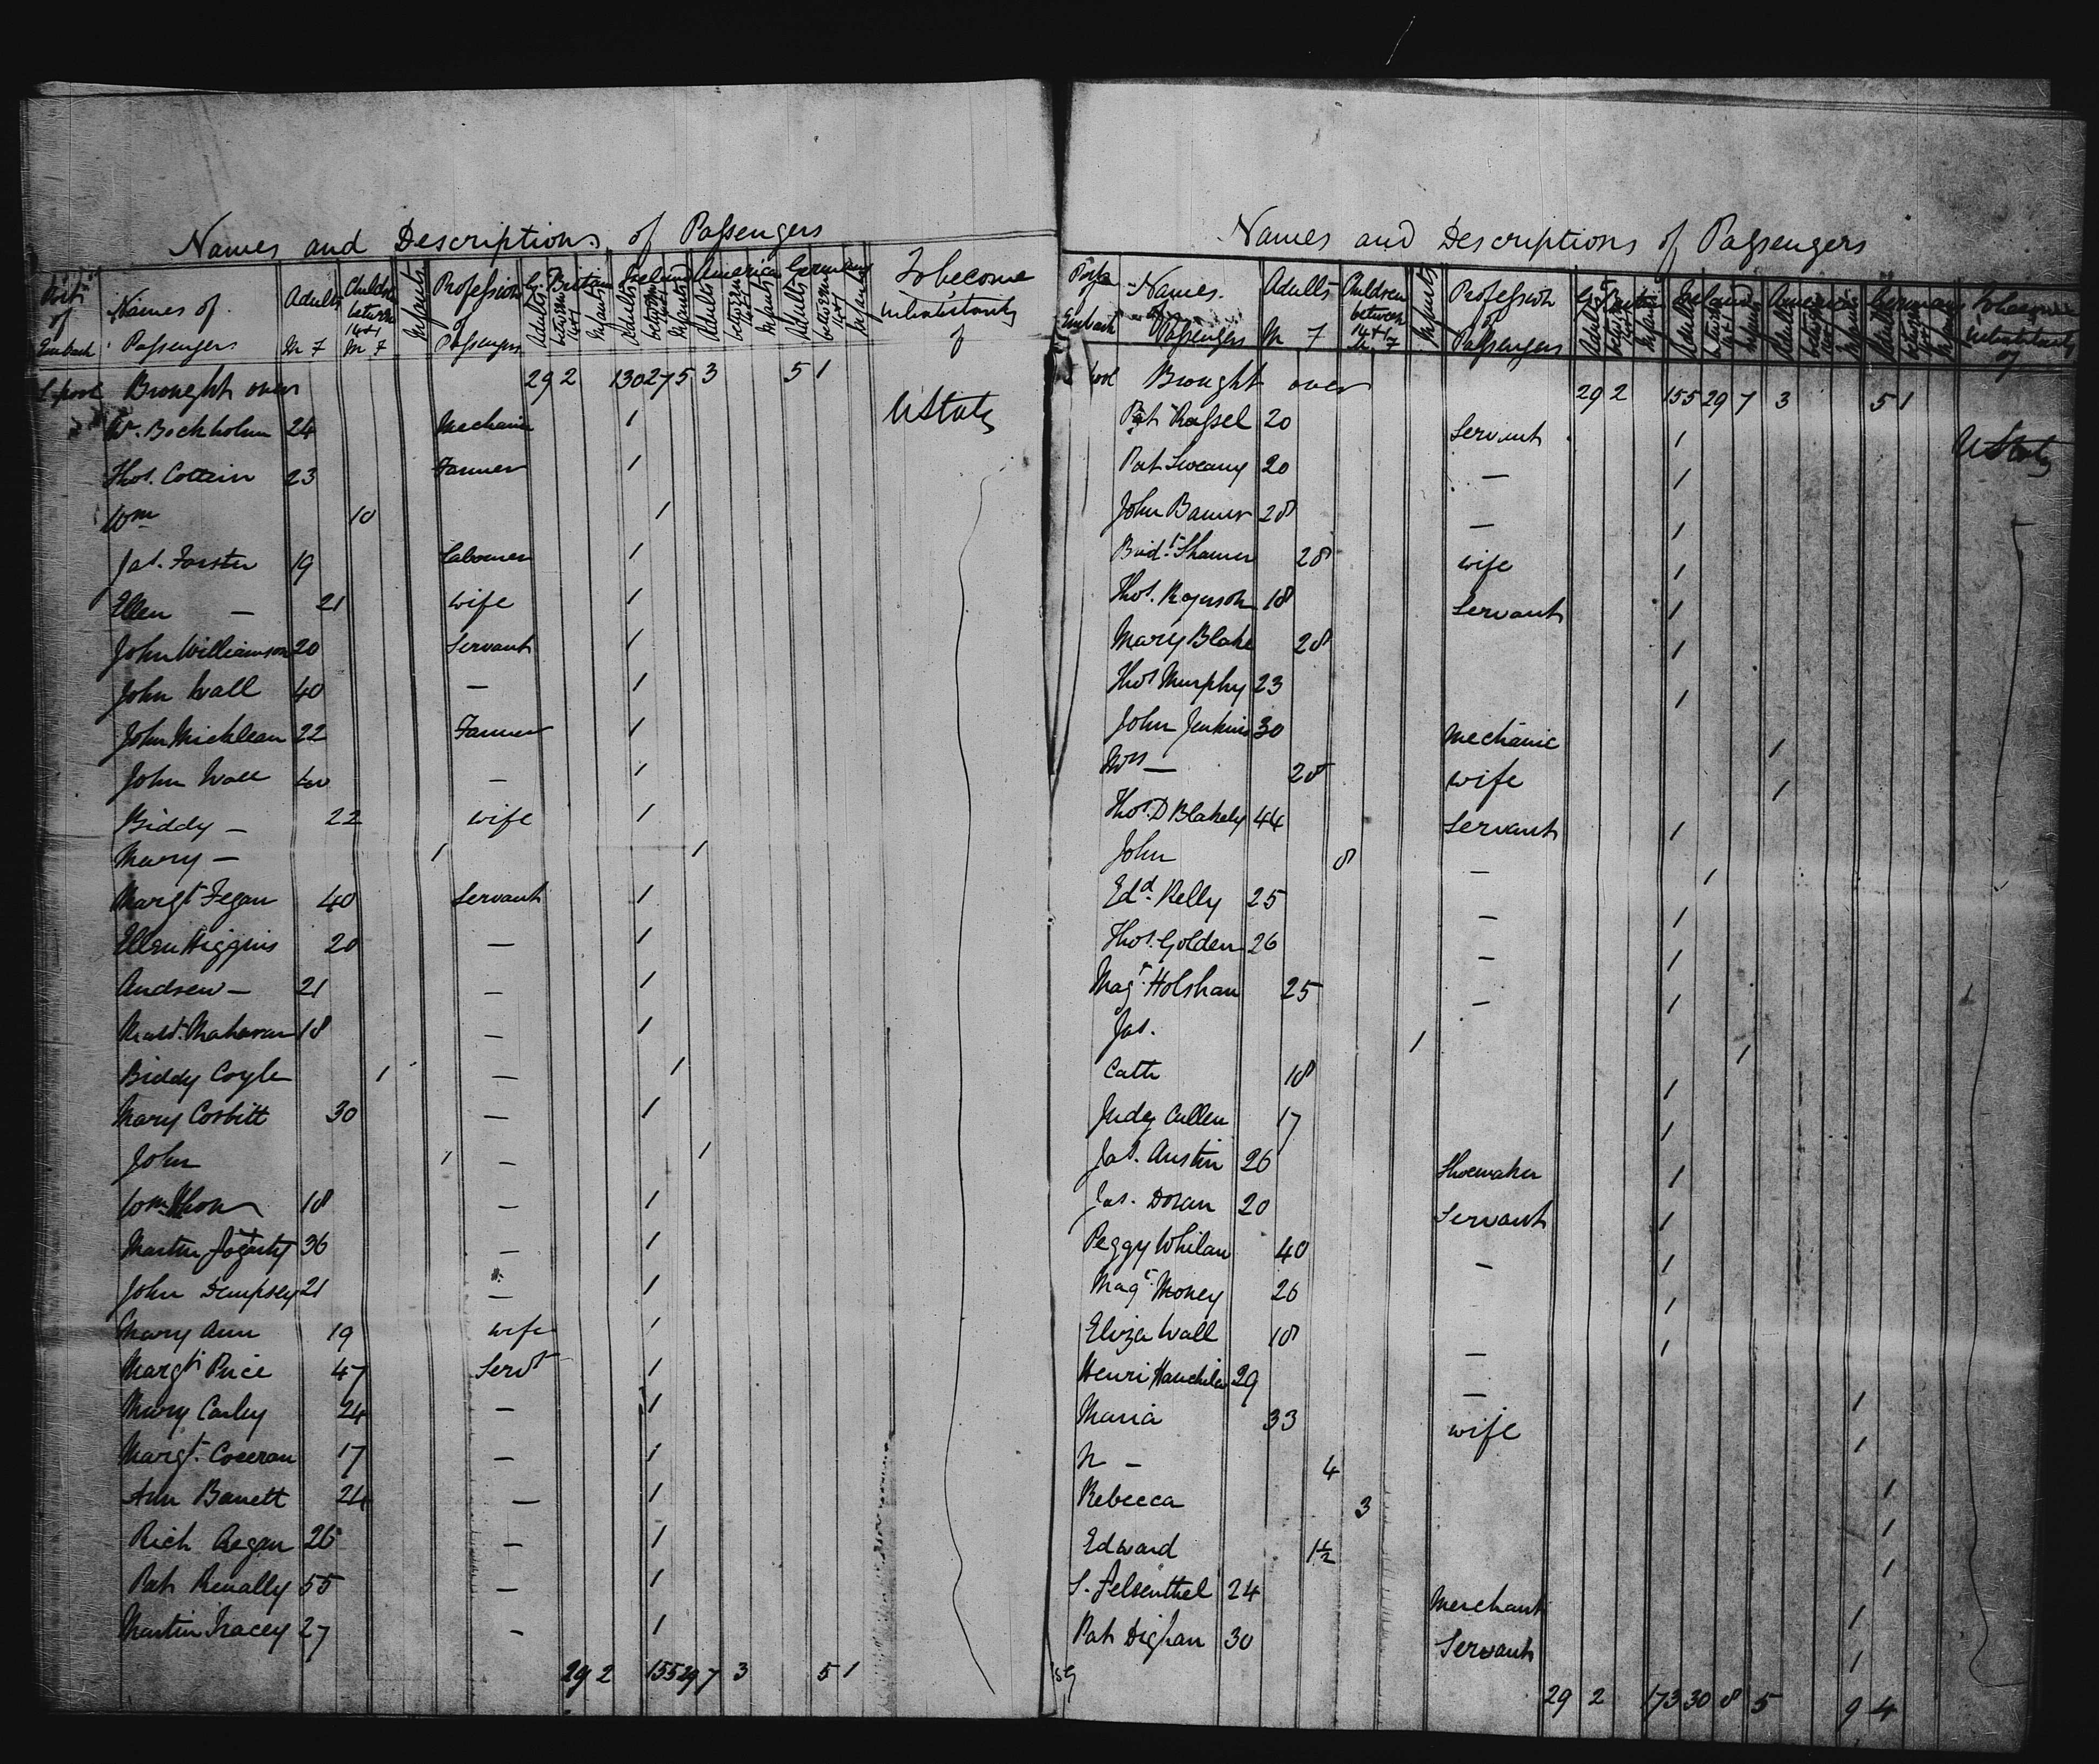 Names and Descriptions of Passengers
Ports of Embark | Names of Passengers | Adults M F | Children between 14 & 1 M F | Infants | Profession of Passengers | G. Britain Adults between 14 & 1 Infants | Ireland Adults between 14 & 1 Infants | America Adults between 14 & 1 Infants | Germany Adults between 14 & 1 Infants | To become inhabitants of
L.pool Brought over 29 2 130 27 5 3 5 1
Wm. Bockholm 24 Mechanic 1 U States
Thos. Cottain 23 Farmer 1
Wm 10 1
Jas. Forster 19 Labourer 1
Ellen — 21 wife 1
John Williamson 20 Servant 1
John Wall 40 — 1
John Micklean 22 Farmer 1
John Wall 40 — 1
Biddy — 22 wife 1
Mary — 1 1
Margt Fegan 40 Servant 1
Ellen Higgins 20 — 1
Andrew — 21 — 1
18 — 1
Biddy Coyle 1 — 1
Mary Corbitt 30 — 1
John 1 — 1
Wm. 18 — 1
Martin Fogarty 36 — 1
John Dempsey 21 — 1
Mary Ann 19 wife 1
Margt Price 47 Servt 1
Mary Carley 24 — 1
Margt. Coceran 17 — 1
Ann Barrett 24 — 1
Rich Regan 26 — 1
Pat Renally 55 — 1
Martin Tracey 27 — 1
29 2 155 29 7 3 5 1
Names and Descriptions of Passengers
Ports Embark | Names of Passengers | Adults M F | Children between 14 & 1 M F | Infants | Profession of Passengers | G. Britain Adults between 14 & 1 Infants | Ireland Adults between 14 & 1 Infants | America Adults between 14 & 1 Infants | Germany Adults between 14 & 1 Infants | To become inhabitants of
L pool Brought over 29 2 155 29 7 3 5 1
Pat Rassel 20 Servant 1 U States
Pat Sweany 20 — 1
John 28 — 1
Bridt. 28 wife 1
Thos. Rogerson 18 Servant 1
Mary Blake 28 1
Thos Murphy 23 1
John Jenkins 30 Mechanic 1
Mrs — 28 wife 1
Thos. D Blakely 44 Servant 1
John 8 — 1
Edd. Kelly 25 — 1
Thos. Golden 26 — 1
Magt. Holshan 25 — 1
Jas. 1 1
Cath 18 1
Judy Cullen 17 1
Jas. Austin 26 Shoemaker 1
Jas. Doran 20 Servant 1
Peggy Whilan 40 — 1
Magt. Money 26 1
Eliza Wall 18 — 1
Henri 29 — 1
Maria 33 wife 1
N — 4 1
Rebecca 3 1
Edward 1½ 1
S. Felsenthel 24 Merchant 1
Pat Dighan 30 Servant 1
29 2 173 30 8 5 9 4